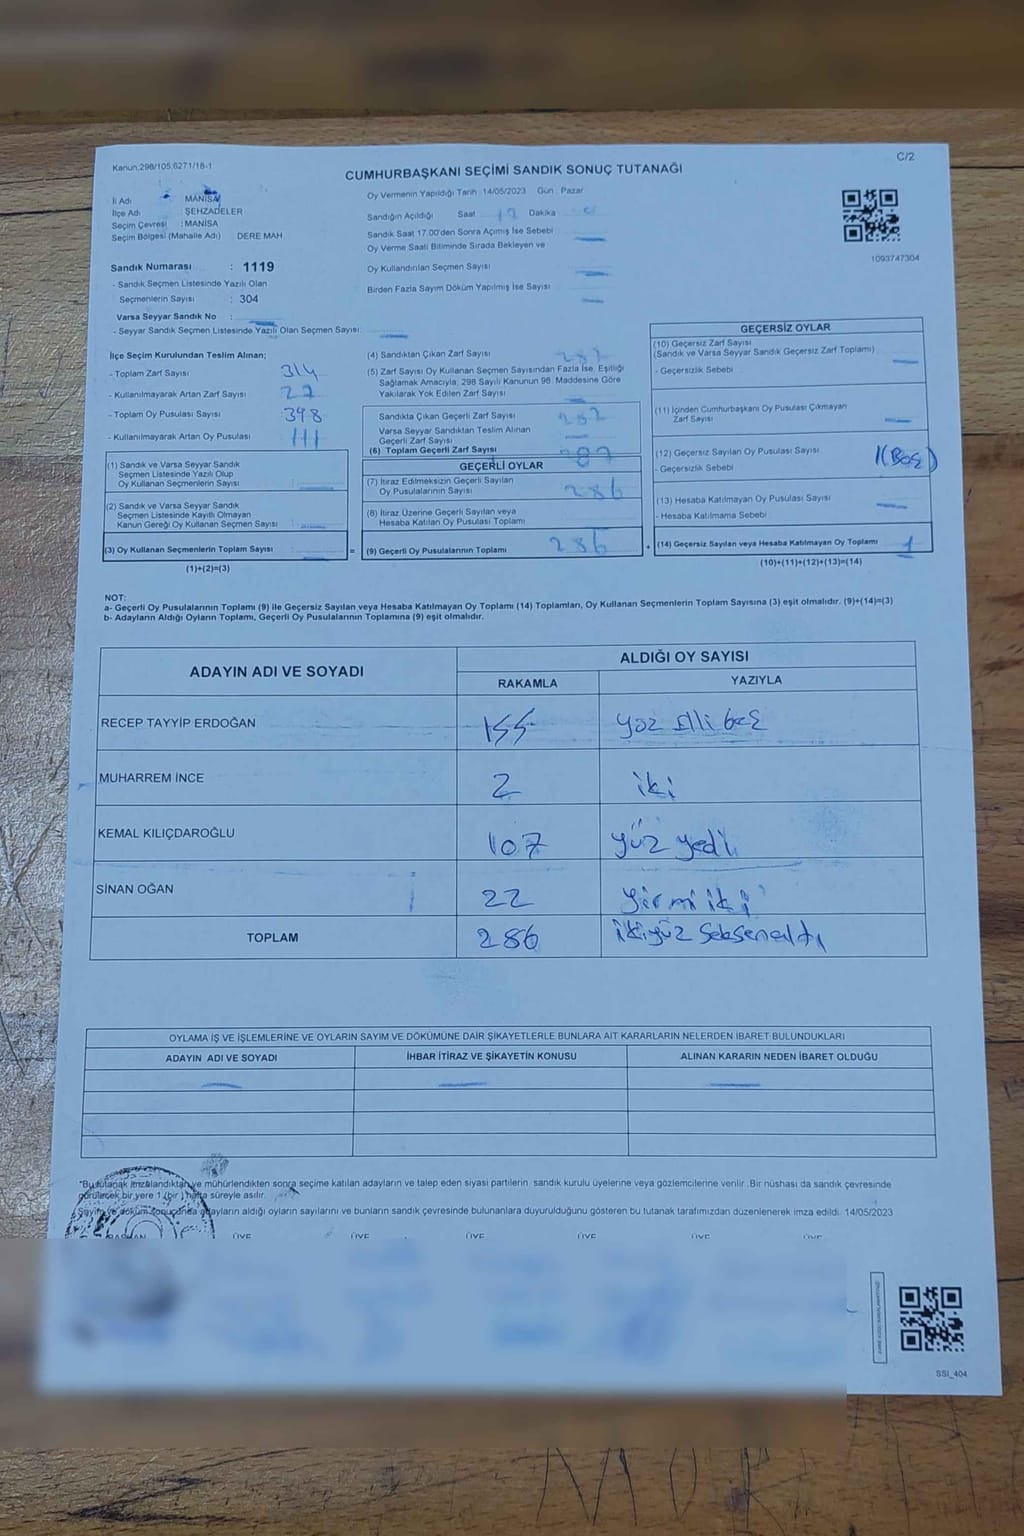 Kanun.298/105,6271/18-1
C/2
CUMHURBAŞKANI SEÇİMİ SANDIK SONUÇ TUTANAĞI
İl Adı MANİSA
İlçe Adı ŞEHZADELER
Seçim Çevresi : MANİSA
Seçim Bölgesi (Mahalle Adı) DERE MAH
Oy Vermenin Yapıldığı Tarih 14/05/2023 Gün : Pazar
Sandığın Açıldığı Saat Dakika
Sandık Saat 17.00'den Sonra Açımış İse Sebebi
Oy Verme Saati Bitiminde Sırada Bekleyen ve
Oy Kullandırılan Seçmen Sayısı
Birden Fazla Sayım Döküm Yapılmış İse Sayısı
1093747304
Sandık Numarası : 1119
- Sandık Seçmen Listesinde Yazılı Olan
Seçmenlerin Sayısı : 304
Varsa Seyyar Sandık No :
- Seyyar Sandık Seçmen Listesinde Yazılı Olan Seçmen Sayısı:
İlçe Seçim Kurulundan Teslim Alınan;
- Toplam Zarf Sayısı 314
- Kullanılmayarak Artan Zarf Sayısı 27
- Toplam Oy Pusulası Sayısı 398
- Kullanılmayarak Artan Oy Pusulası 111
(1) Sandık ve Varsa Seyyar Sandık
Seçmen Listesinde Yazılı Olup
Oy Kullanan Seçmenlerin Sayısı
(2) Sandık ve Varsa Seyyar Sandık
Seçmen Listesinde Kayıtlı Olmayan
Kanun Gereği Oy Kullanan Seçmen Sayısı
(3) Oy Kullanan Seçmenlerin Toplam Sayısı =
(1)+(2)=(3)
(4) Sandıktan Çıkan Zarf Sayısı 287
(5) Zarf Sayısı Oy Kullanan Seçmen Sayısından Fazla İse, Eşitliği
Sağlamak Amacıyla; 298 Sayılı Kanunun 98. Maddesine Göre
Yakılarak Yok Edilen Zarf Sayısı
Sandıkta Çıkan Geçerli Zarf Sayısı 287
Varsa Seyyar Sandıktan Teslim Alınan
Geçerli Zarf Sayısı
(6) Toplam Geçerli Zarf Sayısı 287
GEÇERLİ OYLAR
(7) İtiraz Edilmeksizin Geçerli Sayılan
Oy Pusulalarının Sayısı 286
(8) İtiraz Üzerine Geçerli Sayılan veya
Hesaba Katılan Oy Pusulası Toplamı
(9) Geçerli Oy Pusulalarının Toplamı 286 +
GEÇERSİZ OYLAR
(10) Geçersiz Zarf Sayısı
(Sandık ve Varsa Seyyar Sandık Geçersiz Zarf Toplamı)
- Geçersizlik Sebebi
(11) İçinden Cumhurbaşkanı Oy Pusulası Çıkmayan
Zarf Sayısı
(12) Geçersiz Sayılan Oy Pusulası Sayısı 1(Boş)
- Geçersizlik Sebebi
(13) Hesaba Katılmayan Oy Pusulası Sayısı
- Hesaba Katılmama Sebebi
(14) Geçersiz Sayılan veya Hesaba Katılmayan Oy Toplamı 1
(10)+(11)+(12)+(13)=(14)
NOT:
a- Geçerli Oy Pusulalarının Toplamı (9) ile Geçersiz Sayılan veya Hesaba Katılmayan Oy Toplamı (14) Toplamları, Oy Kullanan Seçmenlerin Toplam Sayısına (3) eşit olmalıdır. (9)+(14)=(3)
b- Adayların Aldığı Oyların Toplamı, Geçerli Oy Pusulalarının Toplamına (9) eşit olmalıdır.
ADAYIN ADI VE SOYADI ALDIĞI OY SAYISI
RAKAMLA YAZIYLA
RECEP TAYYİP ERDOĞAN 155 yüz elli beş
MUHARREM İNCE 2 iki
KEMAL KILIÇDAROĞLU 107 yüz yedi
SİNAN OĞAN 22 yirmi iki
TOPLAM 286 ikiyüz seksenaltı
OYLAMA İŞ VE İŞLEMLERİNE VE OYLARIN SAYIM VE DÖKÜMÜNE DAİR ŞİKAYETLERLE BUNLARA AİT KARARLARIN NELERDEN İBARET BULUNDUKLARI
ADAYIN ADI VE SOYADI İHBAR İTİRAZ VE ŞİKAYETİN KONUSU ALINAN KARARIN NEDEN İBARET OLDUĞU
*Bu tutanak imzalandıktan ve mühürlendikten sonra seçime katılan adayların ve talep eden siyasi partilerin sandık kurulu üyelerine veya gözlemcilerine verilir. Bir nüshası da sandık çevresinde
görülecek bir yere 1 (bir) hafta süreyle asılır.
Sayım ve döküm sonucunda adayların aldığı oyların sayılarını ve bunların sandık çevresinde bulunanlara duyurulduğunu gösteren bu tutanak tarafımızdan düzenlenerek imza edildi. 14/05/2023
BAŞKAN ÜYE ÜYE ÜYE ÜYE ÜYE ÜYE
SSI_404